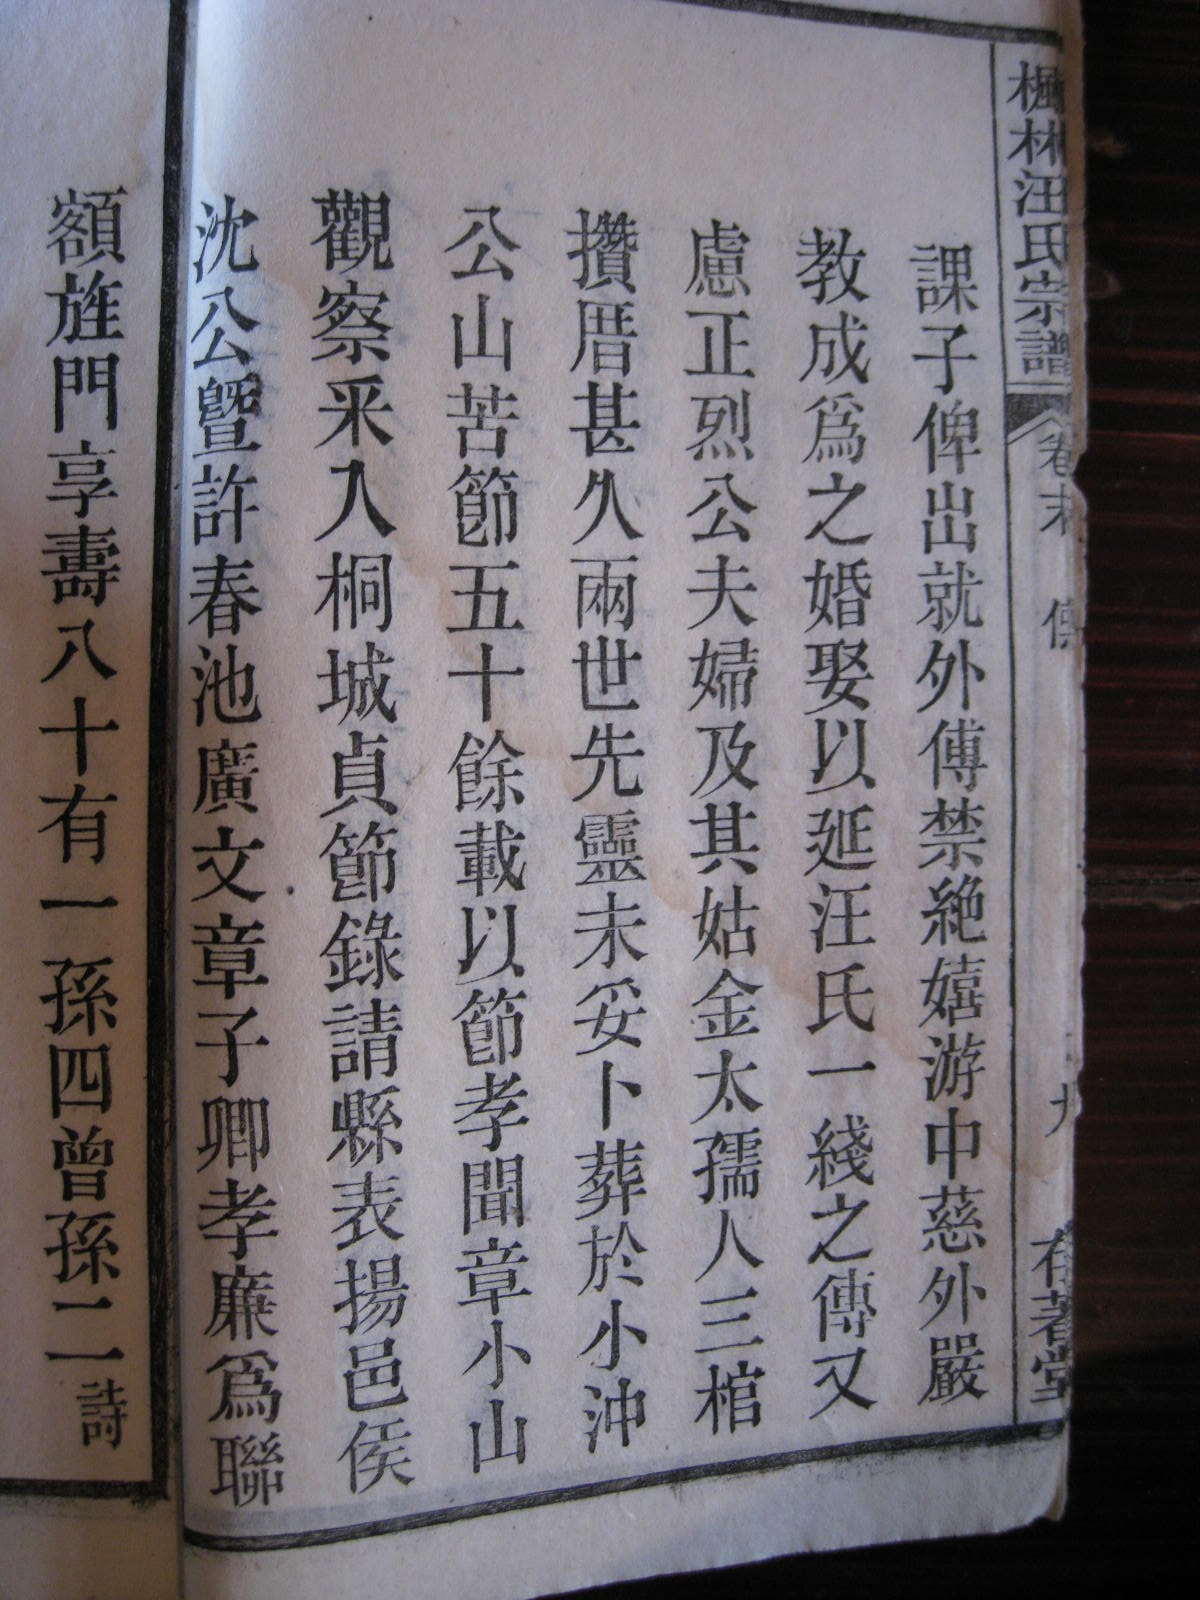 楓林汪氏宗譜 卷末 傳 九
課子俾出就外傅禁絶嬉游中慈外嚴
教成爲之婚娶以延汪氏一綫之傳又
慮正烈公夫婦及其姑金太孺人三棺
攢厝甚久兩世先靈未妥卜葬於小沖
公山苦節五十餘載以節孝聞章小山
觀察采入桐城貞節錄請縣表揚邑侯
沈公曁許春池廣文章子卿孝廉爲聯
額旌門享壽八十有一孫四曾孫二詩